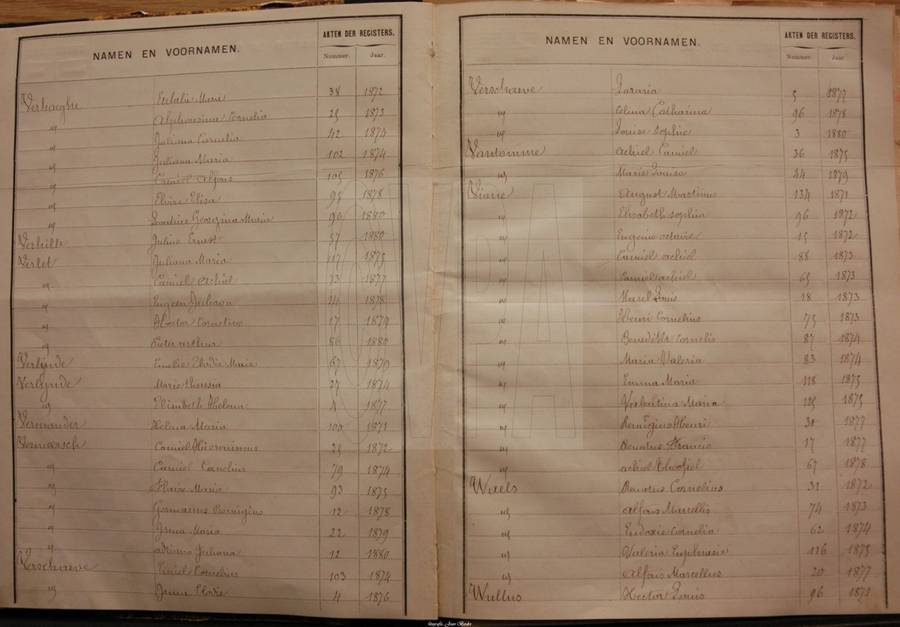 NAMEN EN VOORNAMEN. AKTEN DER REGISTERS.
Nummer. Jaar.
Verhaeghe Marie 38 1872
" Alphonsina Cornelia 25 1873
" Juliana Cornelia 42 1874
" Juliana Maria 102 1874
" Camiel Alfons 105 1876
" Elvire Elisa 95 1878
" Georgina Maria 90 1880
Verhille Julius Ernest 57 1880
Verlet Juliana Maria 117 1875
" Camiel Achiel 73 1877
" Eugeen 1878
" Hector Cornelius 17 1879
" 86 1880
Verlynde Emelie Elodie Marie 67 1870
Verlynde Marie Theresia 27 1874
" Elisabeth Helena 4 1877
Vermander Helena Maria 100 1871
Vermeersch Camiel Hieronimus 25 1872
" Camiel Cornelius 79 1874
" Maria 93 1875
" Germanus Remigius 12 1878
" Irma Maria 22 1879
" Juliana 12 1880
Verschaeve Emiel Cornelius 103 1874
" Irma Elodie 4 1876
NAMEN EN VOORNAMEN. AKTEN DER REGISTERS.
Nummer. Jaar.
Verschaeve Zoraria 5 1877
" Celina Catharina 96 1878
" Louise Sophie 3 1880
Vantomme Achiel Camiel 36 1875
" Marie Louisa 44 1879
August Martinus 134 1871
" Elisabeth Sophia 96 1872
" Eugenie Octavie 15 1872
" Camiel Achiel 88 1873
" Camiel Achiel 65 1873
" Marcel Louis 18 1873
" Henri Cornelius 75 1873
" Benedikt Cornelis 87 1874
" Maria Valeria 83 1874
" Emma Maria 118 1875
" Maria 125 1875
" Remigius Henri 30 1877
" Renatus Francis 17 1877
" Achiel Theofiel 67 1878
Waels Renatus Cornelius 31 1872
" Alfons Marcellis 74 1873
" Eudoxie Cornelia 62 1874
" Valeria Euphrasie 116 1875
" Alfons Marcellus 20 1877
Wullus Hector Louis 96 1871